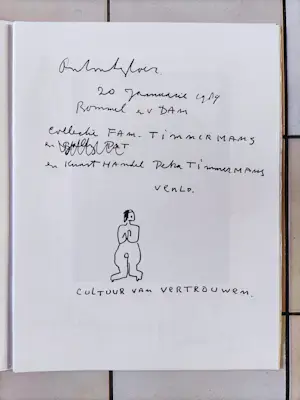 20 Januarie 1989
Rommel e.v DAM
collectie FAM. TIMMERMANS
en PAT
en Kunst HANDEL Petra TIMMERMANS
VenLo.
CULTUUR VAN VERTROUWEN.